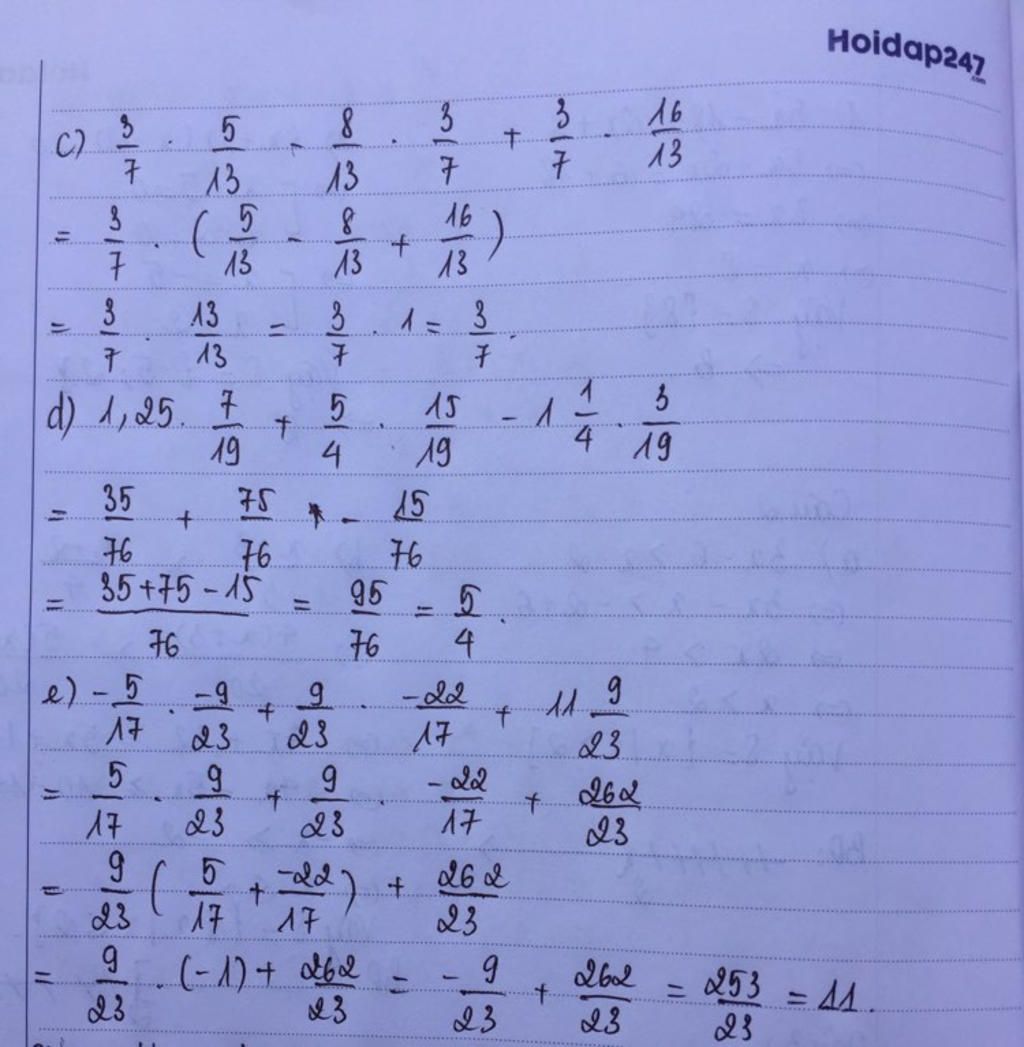 Hoidap247.com
c) 3/7 . 5/13 - 8/13 . 3/7 + 3/7 . 16/13
= 3/7 . (5/13 - 8/13 + 16/13)
= 3/7 . 13/13 = 3/7 . 1 = 3/7 .
d) 1,25 . 7/19 + 5/4 . 15/19 - 1 1/4 . 3/19
= 35/76 + 75/76 - 15/76
= (35+75-15)/76 = 95/76 = 5/4 .
e) -5/17 . -9/23 + 9/23 . -22/17 + 11 9/23
= 5/17 . 9/23 + 9/23 . -22/17 + 262/23
= 9/23 (5/17 + -22/17) + 262/23
= 9/23 . (-1) + 262/23 = -9/23 + 262/23 = 253/23 = 11 .